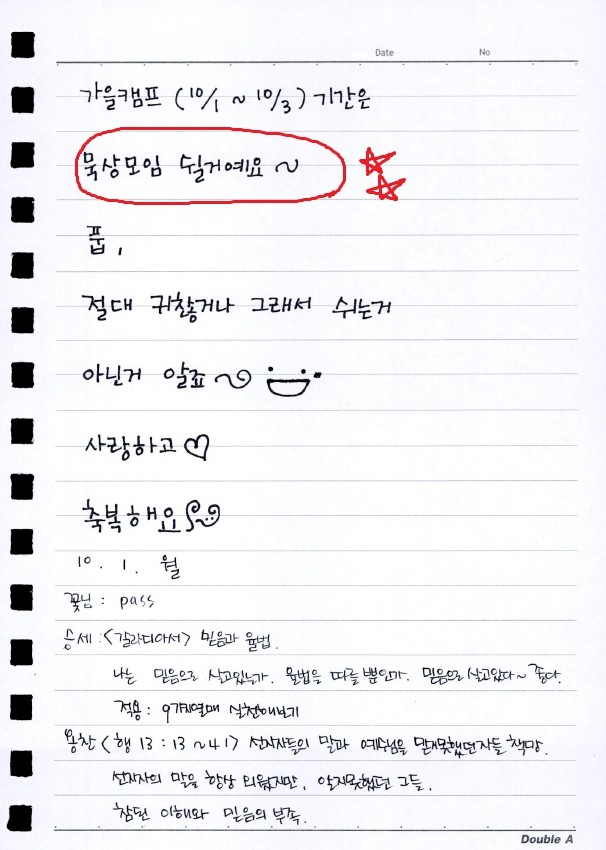 Date No
가을캠프 (10/1 ~ 10/3) 기간은
묵상모임 쉴거예요 ~
풉,
절대 귀찮거나 그래서 쉬는거
아닌거 알죠~
사랑하고♡
축복해요
10. 1. 월
꽃님 : pass
승세 : <갈라디아서> 믿음과 율법.
나는 믿음으로 살고있는가. 율법을 따를 뿐인가. 믿음으로 살고있다~ 좋다.
적용 : 9가지열매 실천해보기
용찬 <행 13 : 13 ~ 41> 선지자들의 말과 예수님을 믿지못했던자들 책망.
선지자의 말을 항상 외웠지만, 알지못했던 그들.
참된 이해와 믿음의 부족.
Double A